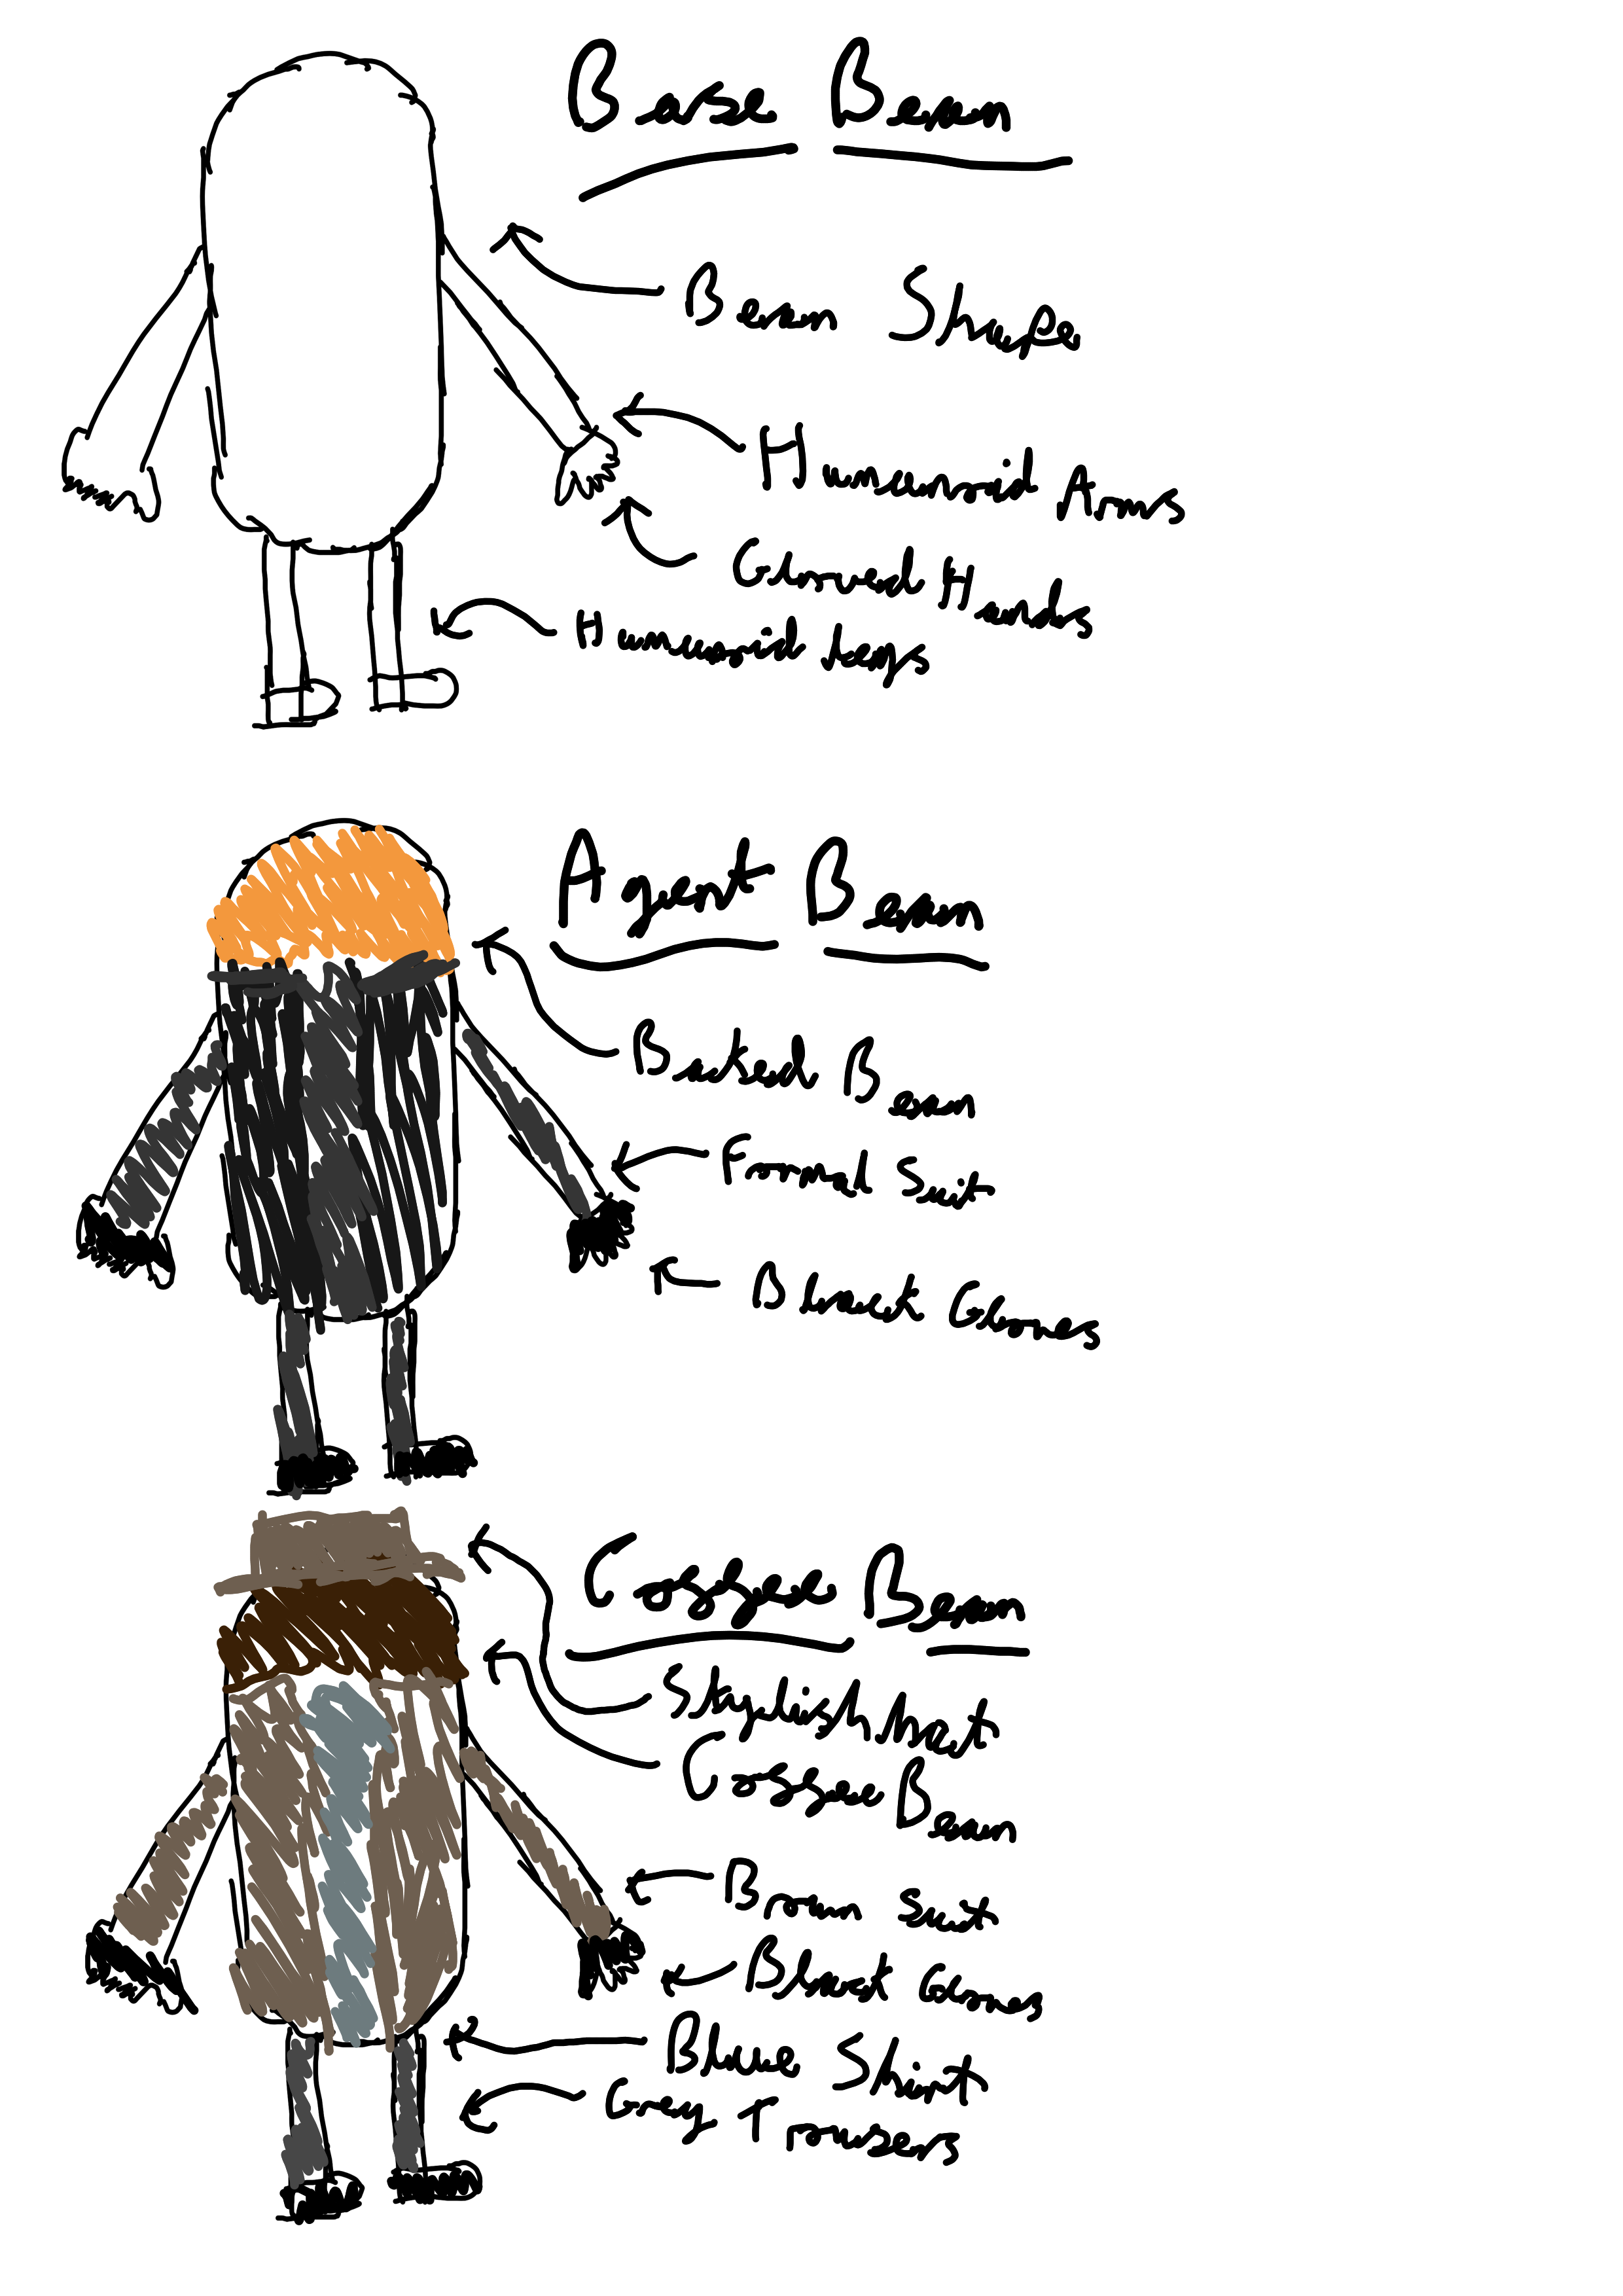 Base Bean
Bean Shape
Humanoid Arms
Gloved Hands
Humanoid Legs
Agent Bean
Baked Bean
Formal Suit
Black Gloves
Coffee Bean
Stylish hat
Coffee Bean
Brown Suit
Black Gloves
Blue Shirt
Grey Trousers